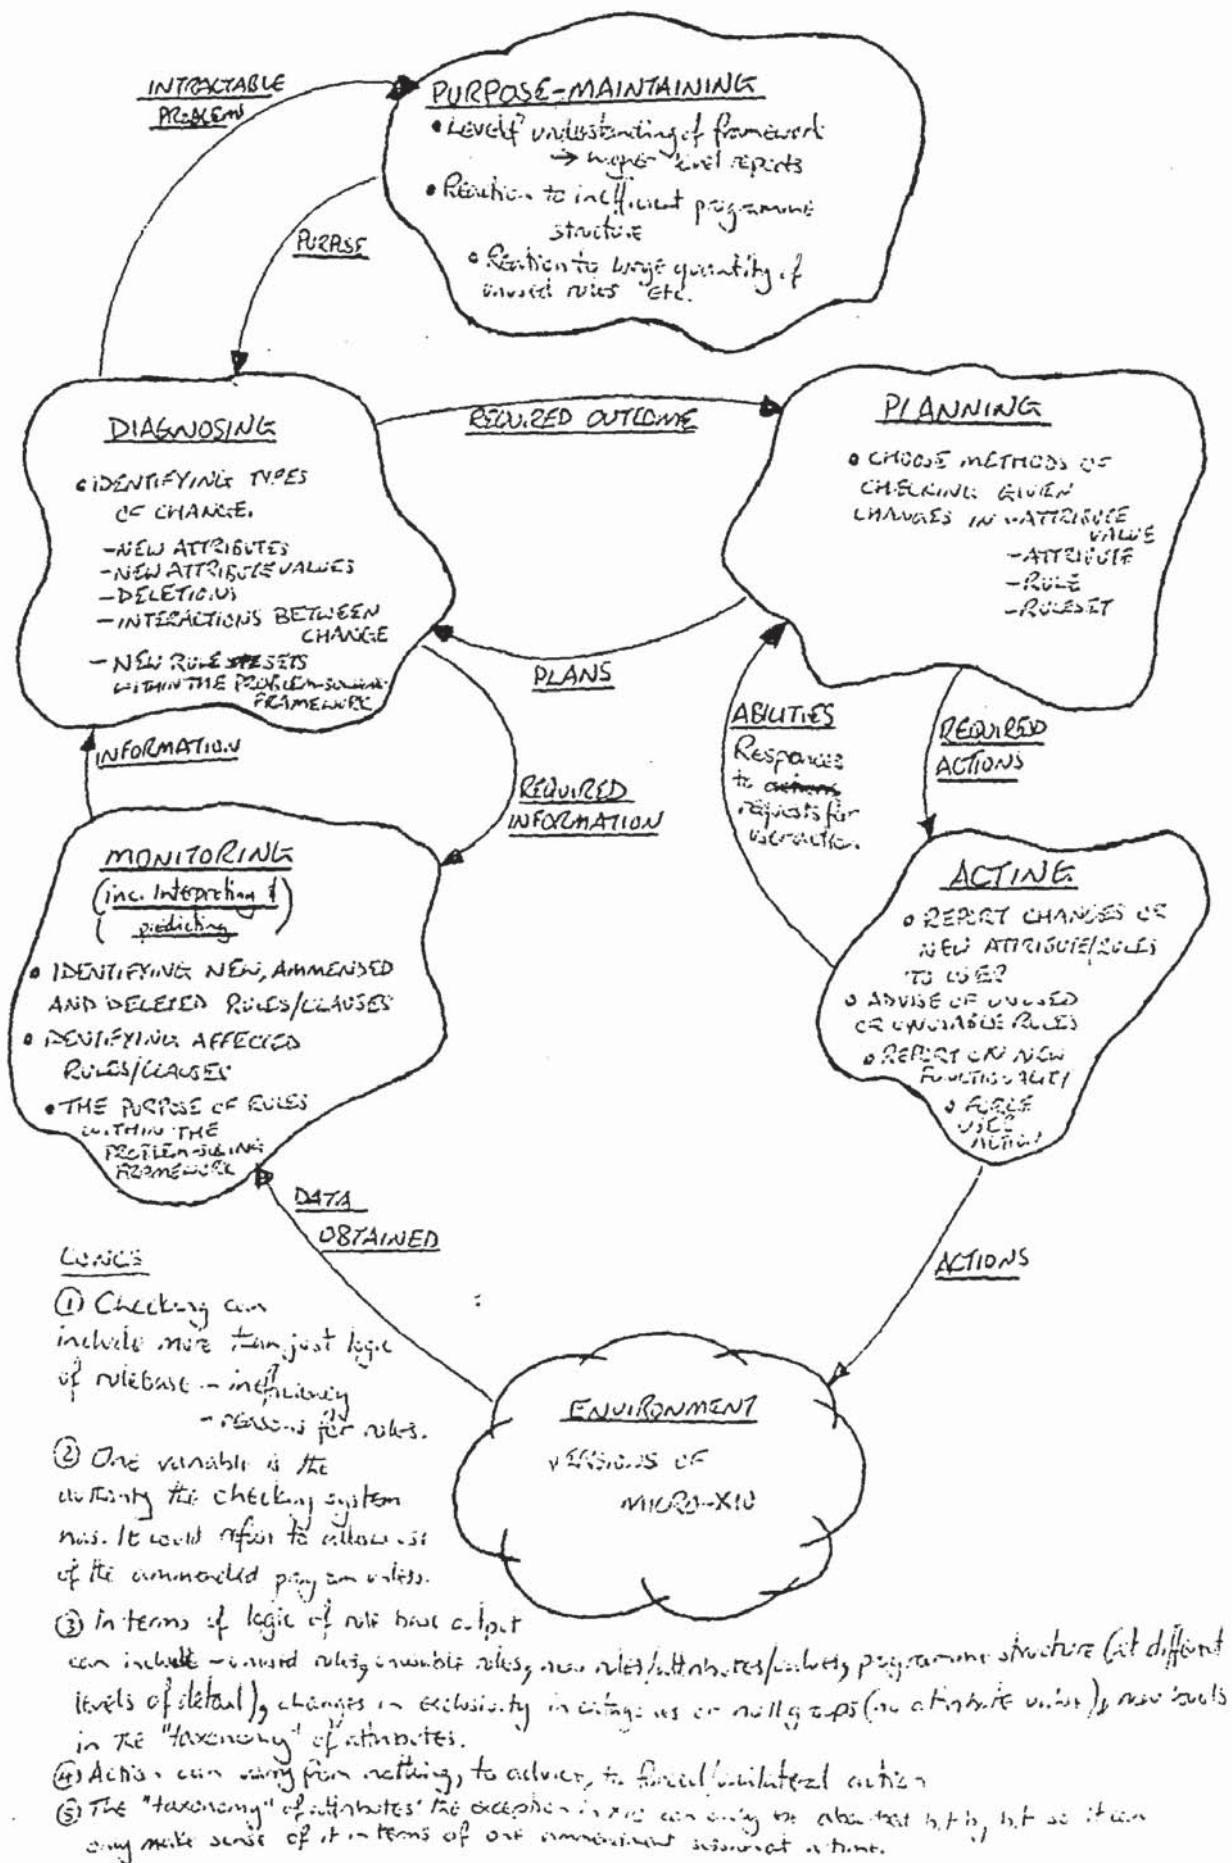 INTRACTABLE
PROBLEMS
PURPOSE-MAINTAINING
• Level of understanding of framework
→ higher level reports
• Reaction to inefficient programme
structure
• Reaction to large quantity of
unused rules etc.
PURPOSE
DIAGNOSING
• IDENTIFYING TYPES
OF CHANGE.
- NEW ATTRIBUTES
- NEW ATTRIBUTE VALUES
- DELETIONS
- INTERACTIONS BETWEEN
CHANGE
- NEW RULE SETS
WITHIN THE PROBLEM-SOLVING
FRAMEWORK
REQUIRED OUTCOME
PLANNING
• CHOOSE METHODS OF
CHECKING GIVEN
CHANGES IN - ATTRIBUTE
VALUE
- ATTRIBUTE
- RULE
- RULESET
PLANS
INFORMATION
REQUIRED
INFORMATION
ABILITIES
Responses
to actions
requests for
REQUIRED
ACTIONS
MONITORING
(inc. Interpreting &
predicting)
• IDENTIFYING NEW, AMMENDED
AND DELETED RULES/CLAUSES
• IDENTIFYING AFFECTED
RULES/CLAUSES
• THE PURPOSE OF RULES
WITHIN THE
PROBLEM-SOLVING
FRAMEWORK
ACTING
• REPORT CHANGES OR
NEW ATTRIBUTE/RULES
TO USER
• ADVISE OF UNUSED
OR UNUSABLE RULES
• REPORT ON NEW
FUNCTIONALITY
• FORCE
USER
ACTION
DATA
OBTAINED
ACTIONS
ENVIRONMENT
VERSIONS OF
MICRO-X10
CONCS
① Checking can
include more than just logic
of rulebase - inefficiency
- reasons for rules.
② One variable is the
authority the checking system
has. It could refuse to allow use
of the ammended program unless.
③ In terms of logic of rule base output
can include - unused rules, unusable rules, new rules/attributes/values, programme structure (at different
levels of detail), changes in exclusivity in categories or null groups (no attribute value), new levels
in the "taxonomy" of attributes.
④ Action can vary from nothing, to advice, to forced/unilateral action
⑤ The "taxonomy" of attributes' the exception in can only be bit by bit so it can
only make sense of it in terms of one ammendment session at a time.